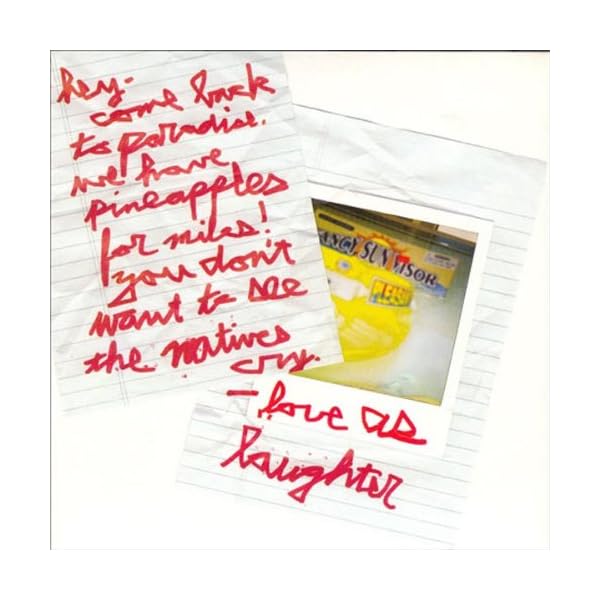 hey-
come back
to paradise.
we have
pineapples
for miles!
you don't
want to see
the natives
cry.
- love as
laughter
ANCY SUN VISOR